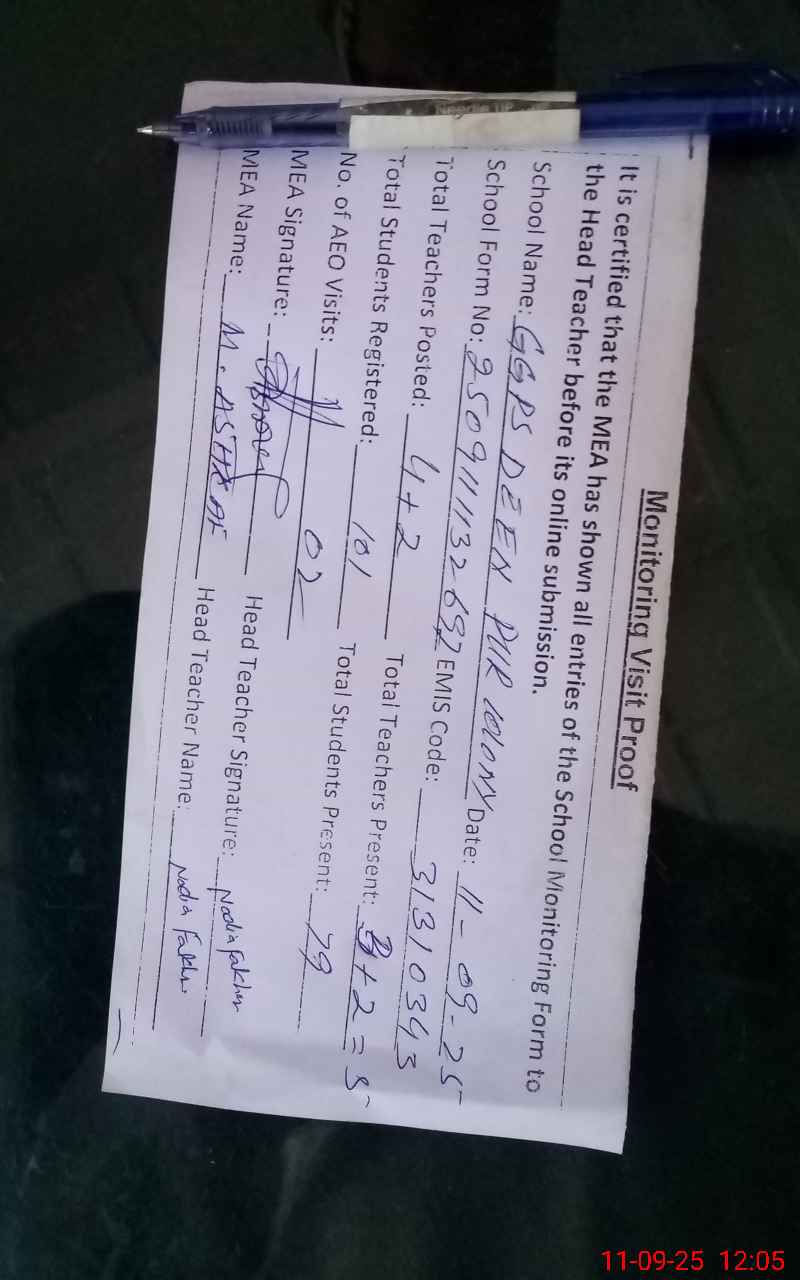 Needle UP
Monitoring Visit Proof
It is certified that the MEA has shown all entries of the School Monitoring Form to
the Head Teacher before its online submission.
School Name: GGPS DEEN PUR COLONY Date: 11-09-25
School Form No: 2509111132692 EMIS Code: 31310343
Total Teachers Posted: 4+2 Total Teachers Present: 3+2=5
Total Students Registered: 101 Total Students Present: 79
No. of AEO Visits: 02
MEA Signature: Head Teacher Signature: Nadia Fakher
MEA Name: M. ASHRAF Head Teacher Name: Nadia Fakhr
11-09-25 12:05